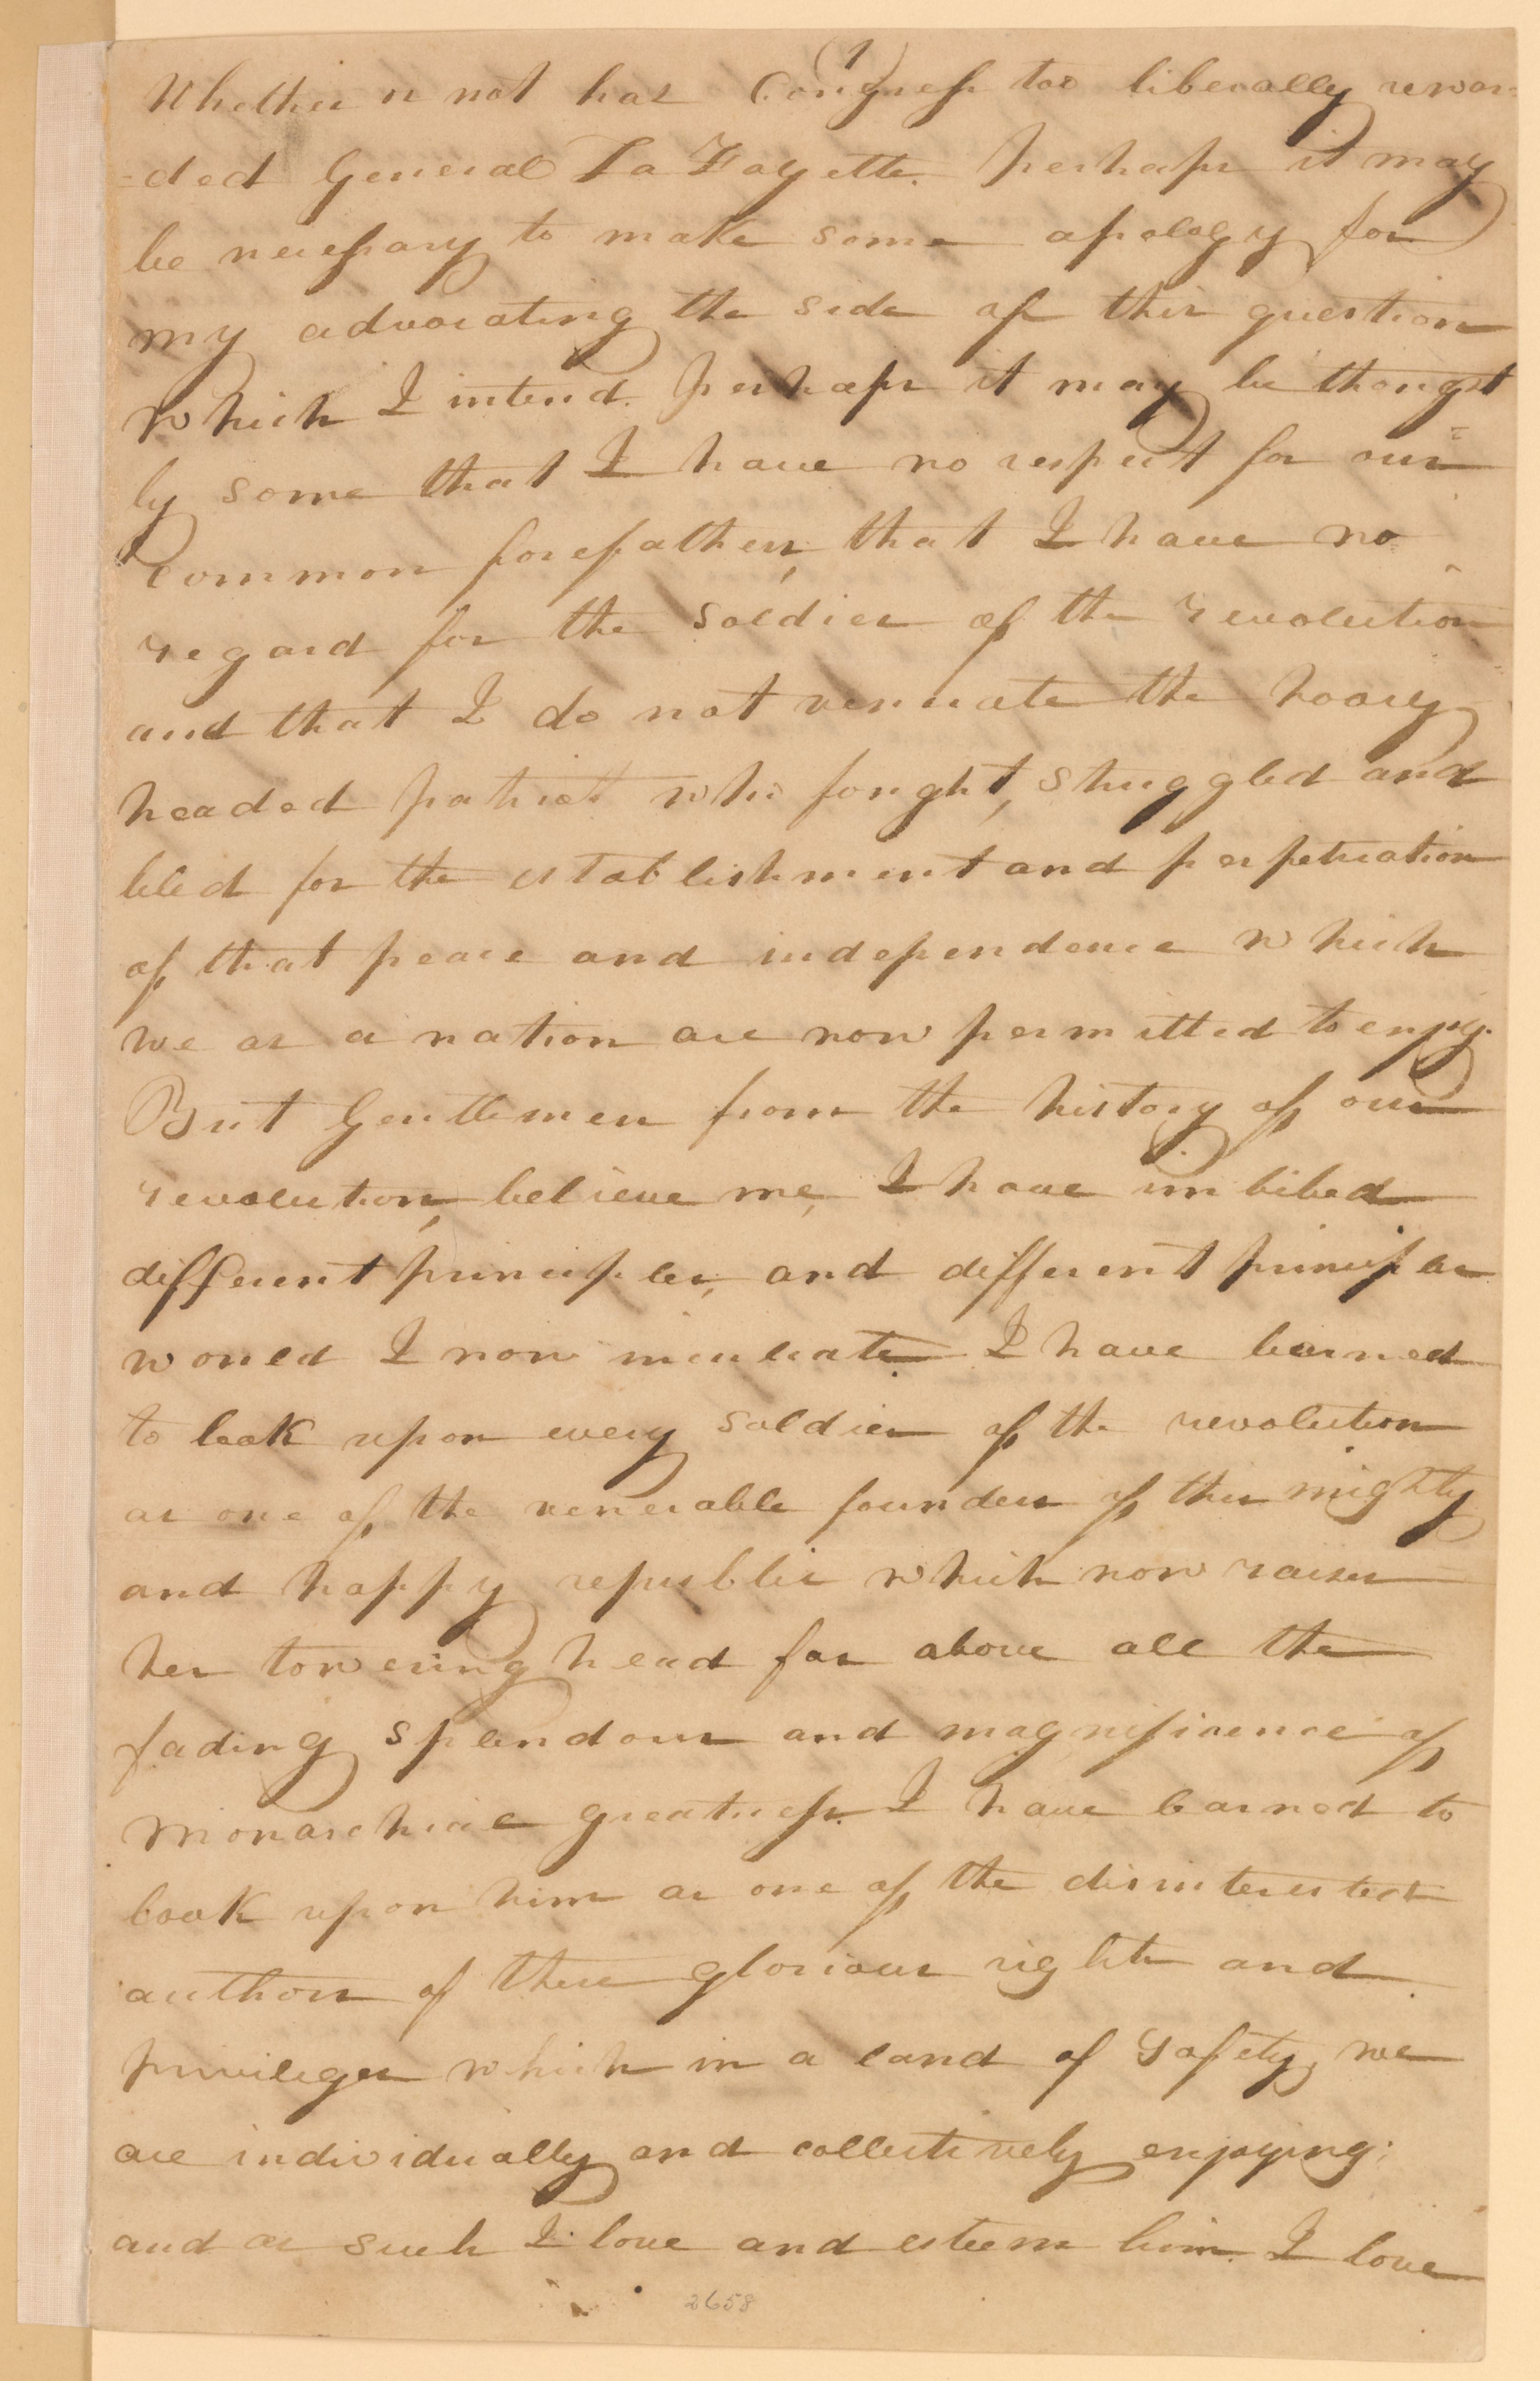 (1)
Whether or not has Congress too liberally rewar=
=ded General La Fayette. Perhaps it may
be necessary to make some apology for
my advocating the side of this question
which I intend. Perhaps it may be thought
by some that I have no respect for our
common forefathers, that I have no
regard for the soldier of the revolution
and that I do not venerate the hoary
headed patriot who fought, struggled and
bled for the establishment and perpetuation
of that peace and independence which
we as a nation are now permitted to enjoy.
But Gentlemen from the history of our
revolution, believe me, I have imbibed
different principles, and different principles
would I now inculcate. I have learned
to look upon every soldier of the revolution
as one of the venerable founders of this mighty
and happy republic which now raises
her towering head far above all the
fading splendour and magnificence of
monarchical greatness. I have learned to
look upon him as one of the disinterested
authors of these glorious rights and
privileges which in a land of safety, we
are individually and collectively enjoying;
and as such I love and esteem him. I love
2658